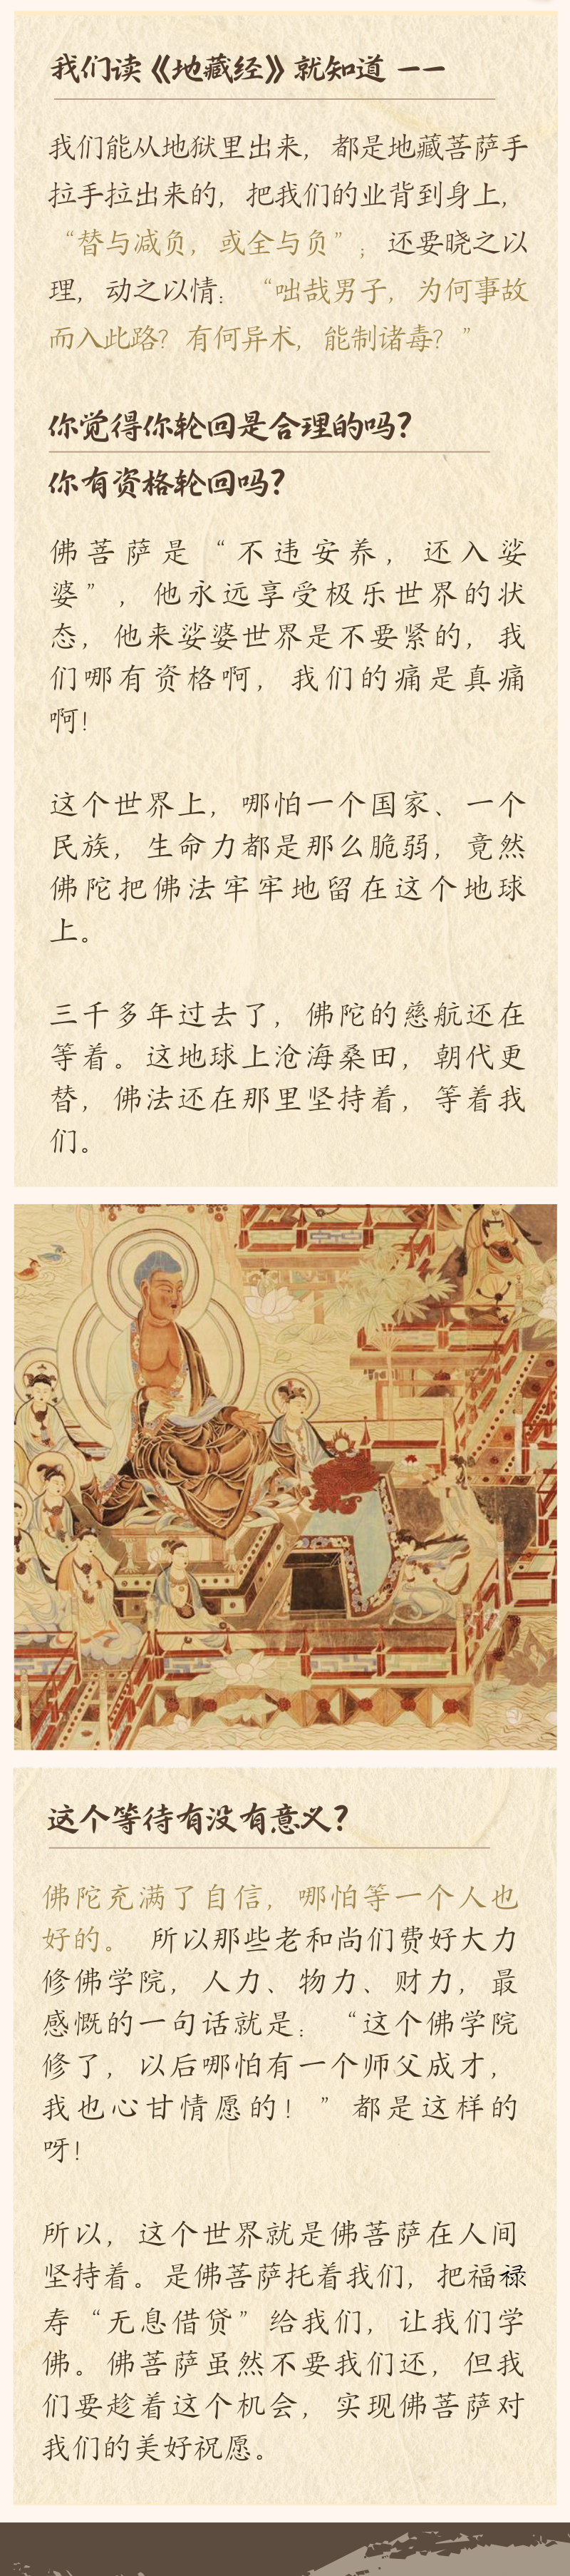 我们读《地藏经》就知道 ——
我们能从地狱里出来，都是地藏菩萨手
拉手拉出来的，把我们的业背到身上，
“替与减负，或全与负”；还要晓之以
理，动之以情：“咄哉男子，为何事故
而入此路？有何异术，能制诸毒？”
你觉得你轮回是合理的吗？
你有资格轮回吗？
佛菩萨是“不违安养，还入娑
婆”，他永远享受极乐世界的状
态，他来娑婆世界是不要紧的，我
们哪有资格啊，我们的痛是真痛
啊！
这个世界上，哪怕一个国家、一个
民族，生命力都是那么脆弱，竟然
佛陀把佛法牢牢地留在这个地球
上。
三千多年过去了，佛陀的慈航还在
等着。这地球上沧海桑田，朝代更
替，佛法还在那里坚持着，等着我
们。
这个等待有没有意义？
佛陀充满了自信，哪怕等一个人也
好的。 所以那些老和尚们费好大力
修佛学院，人力、物力、财力，最
感慨的一句话就是：“这个佛学院
修了，以后哪怕有一个师父成才，
我也心甘情愿的！”都是这样的
呀！
所以，这个世界就是佛菩萨在人间
坚持着。是佛菩萨托着我们，把福禄
寿“无息借贷”给我们，让我们学
佛。佛菩萨虽然不要我们还，但我
们要趁着这个机会，实现佛菩萨对
我们的美好祝愿。